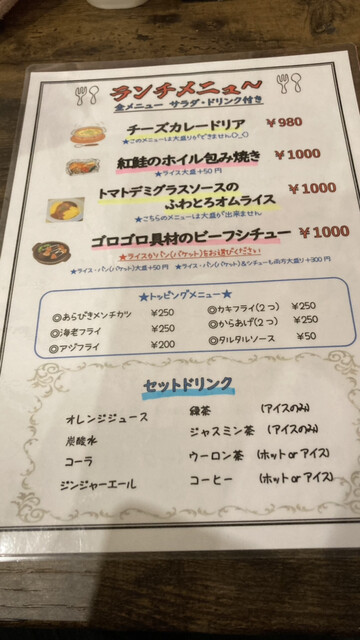 ランチメニュ〜
全メニュー サラダ・ドリンク付き
チーズカレードリア ￥980
★このメニューは大盛りができません○_○
紅鮭のホイル包み焼き ￥1000
★ライス大盛+50円
トマトデミグラスソースの ￥1000
ふわとろオムライス
★こちらのメニューは大盛が出来ません
ゴロゴロ具材のビーフシチュー ￥1000
★ライスかパン(バケット)をお選びください
★ライス・パン(バケット)大盛+50円 ★ライス・パン(バケット)&シチューも両方大盛り+300円
★トッピングメニュー★
◎あらびきメンチカツ ¥250 ◎カキフライ(2つ) ¥250
◎海老フライ ¥250 ◎からあげ(2つ) ¥250
◎アジフライ ¥200 ◎タルタルソース ¥50
セットドリンク
オレンジジュース 緑茶 (アイスのみ)
炭酸水 ジャスミン茶 (アイスのみ)
コーラ ウーロン茶 (ホットorアイス)
ジンジャーエール コーヒー (ホットorアイス)